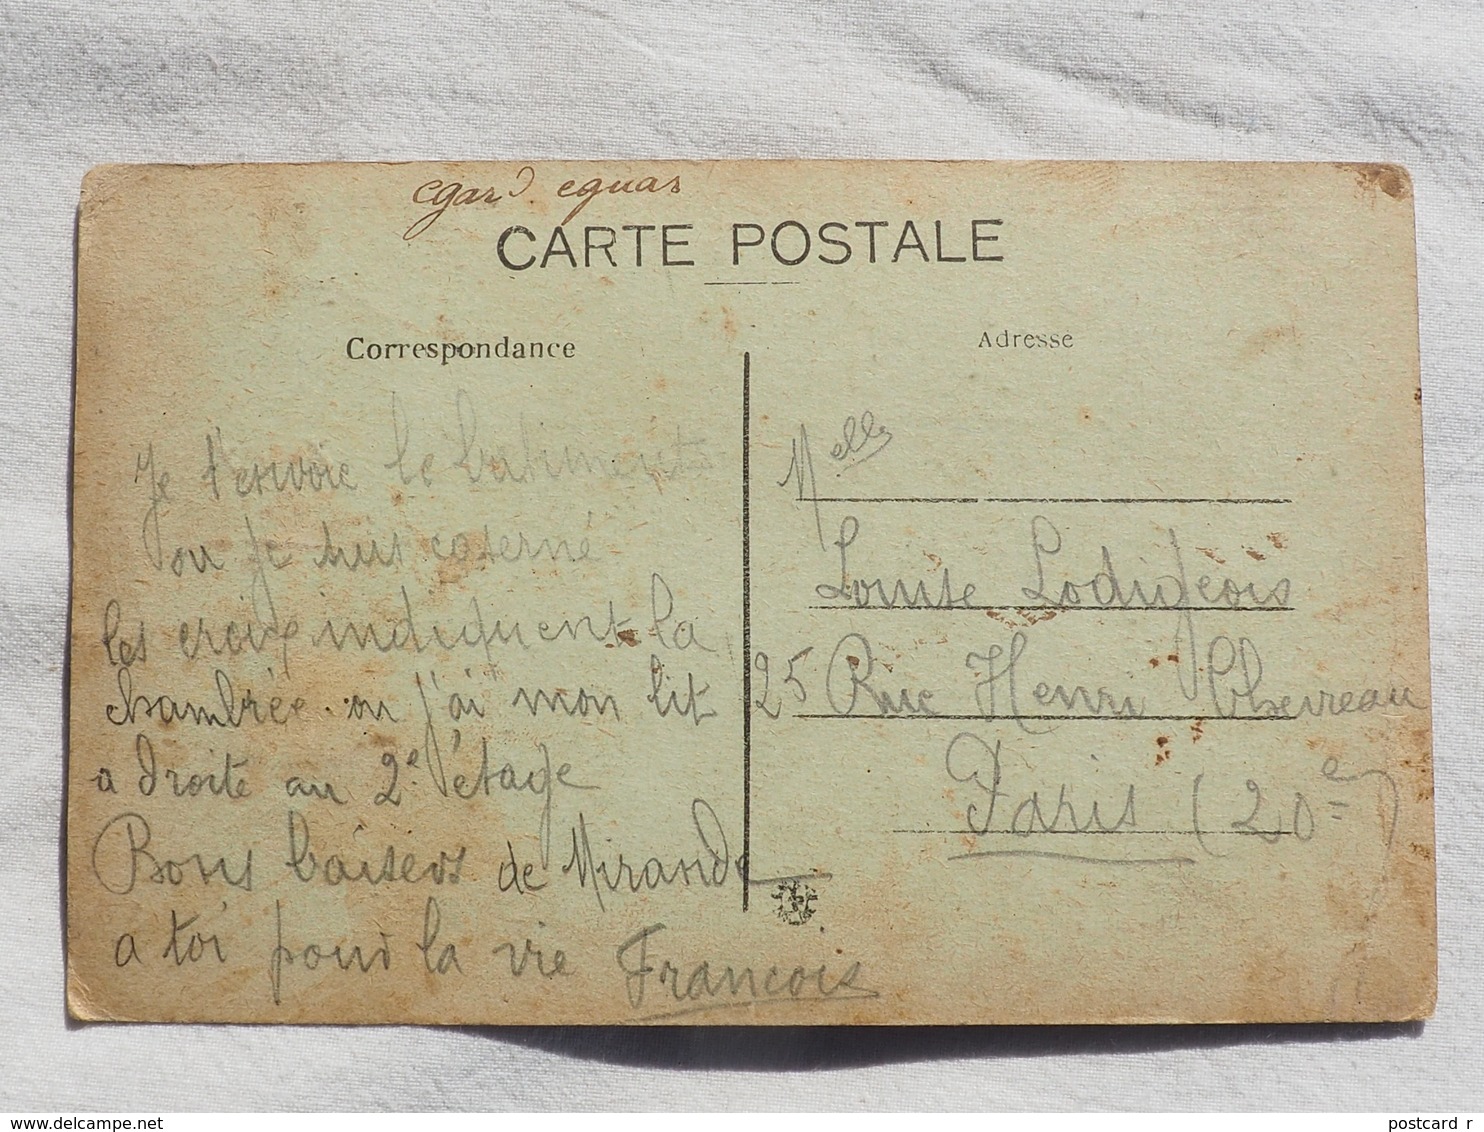 egard. eguar
CARTE POSTALE
Correspondance
Adresse
Je t'envoie le batiment
ou je suis caserné
les croix indiquent la
chambrée ou j'ai mon lit
a droite au 2e étage
Bons baisers de Mirande
a toi pour la vie François
Melle
Louise Lodigeois
25 Rue Henri Chevreau
Paris (20e)
delcampe.net
postcard_r